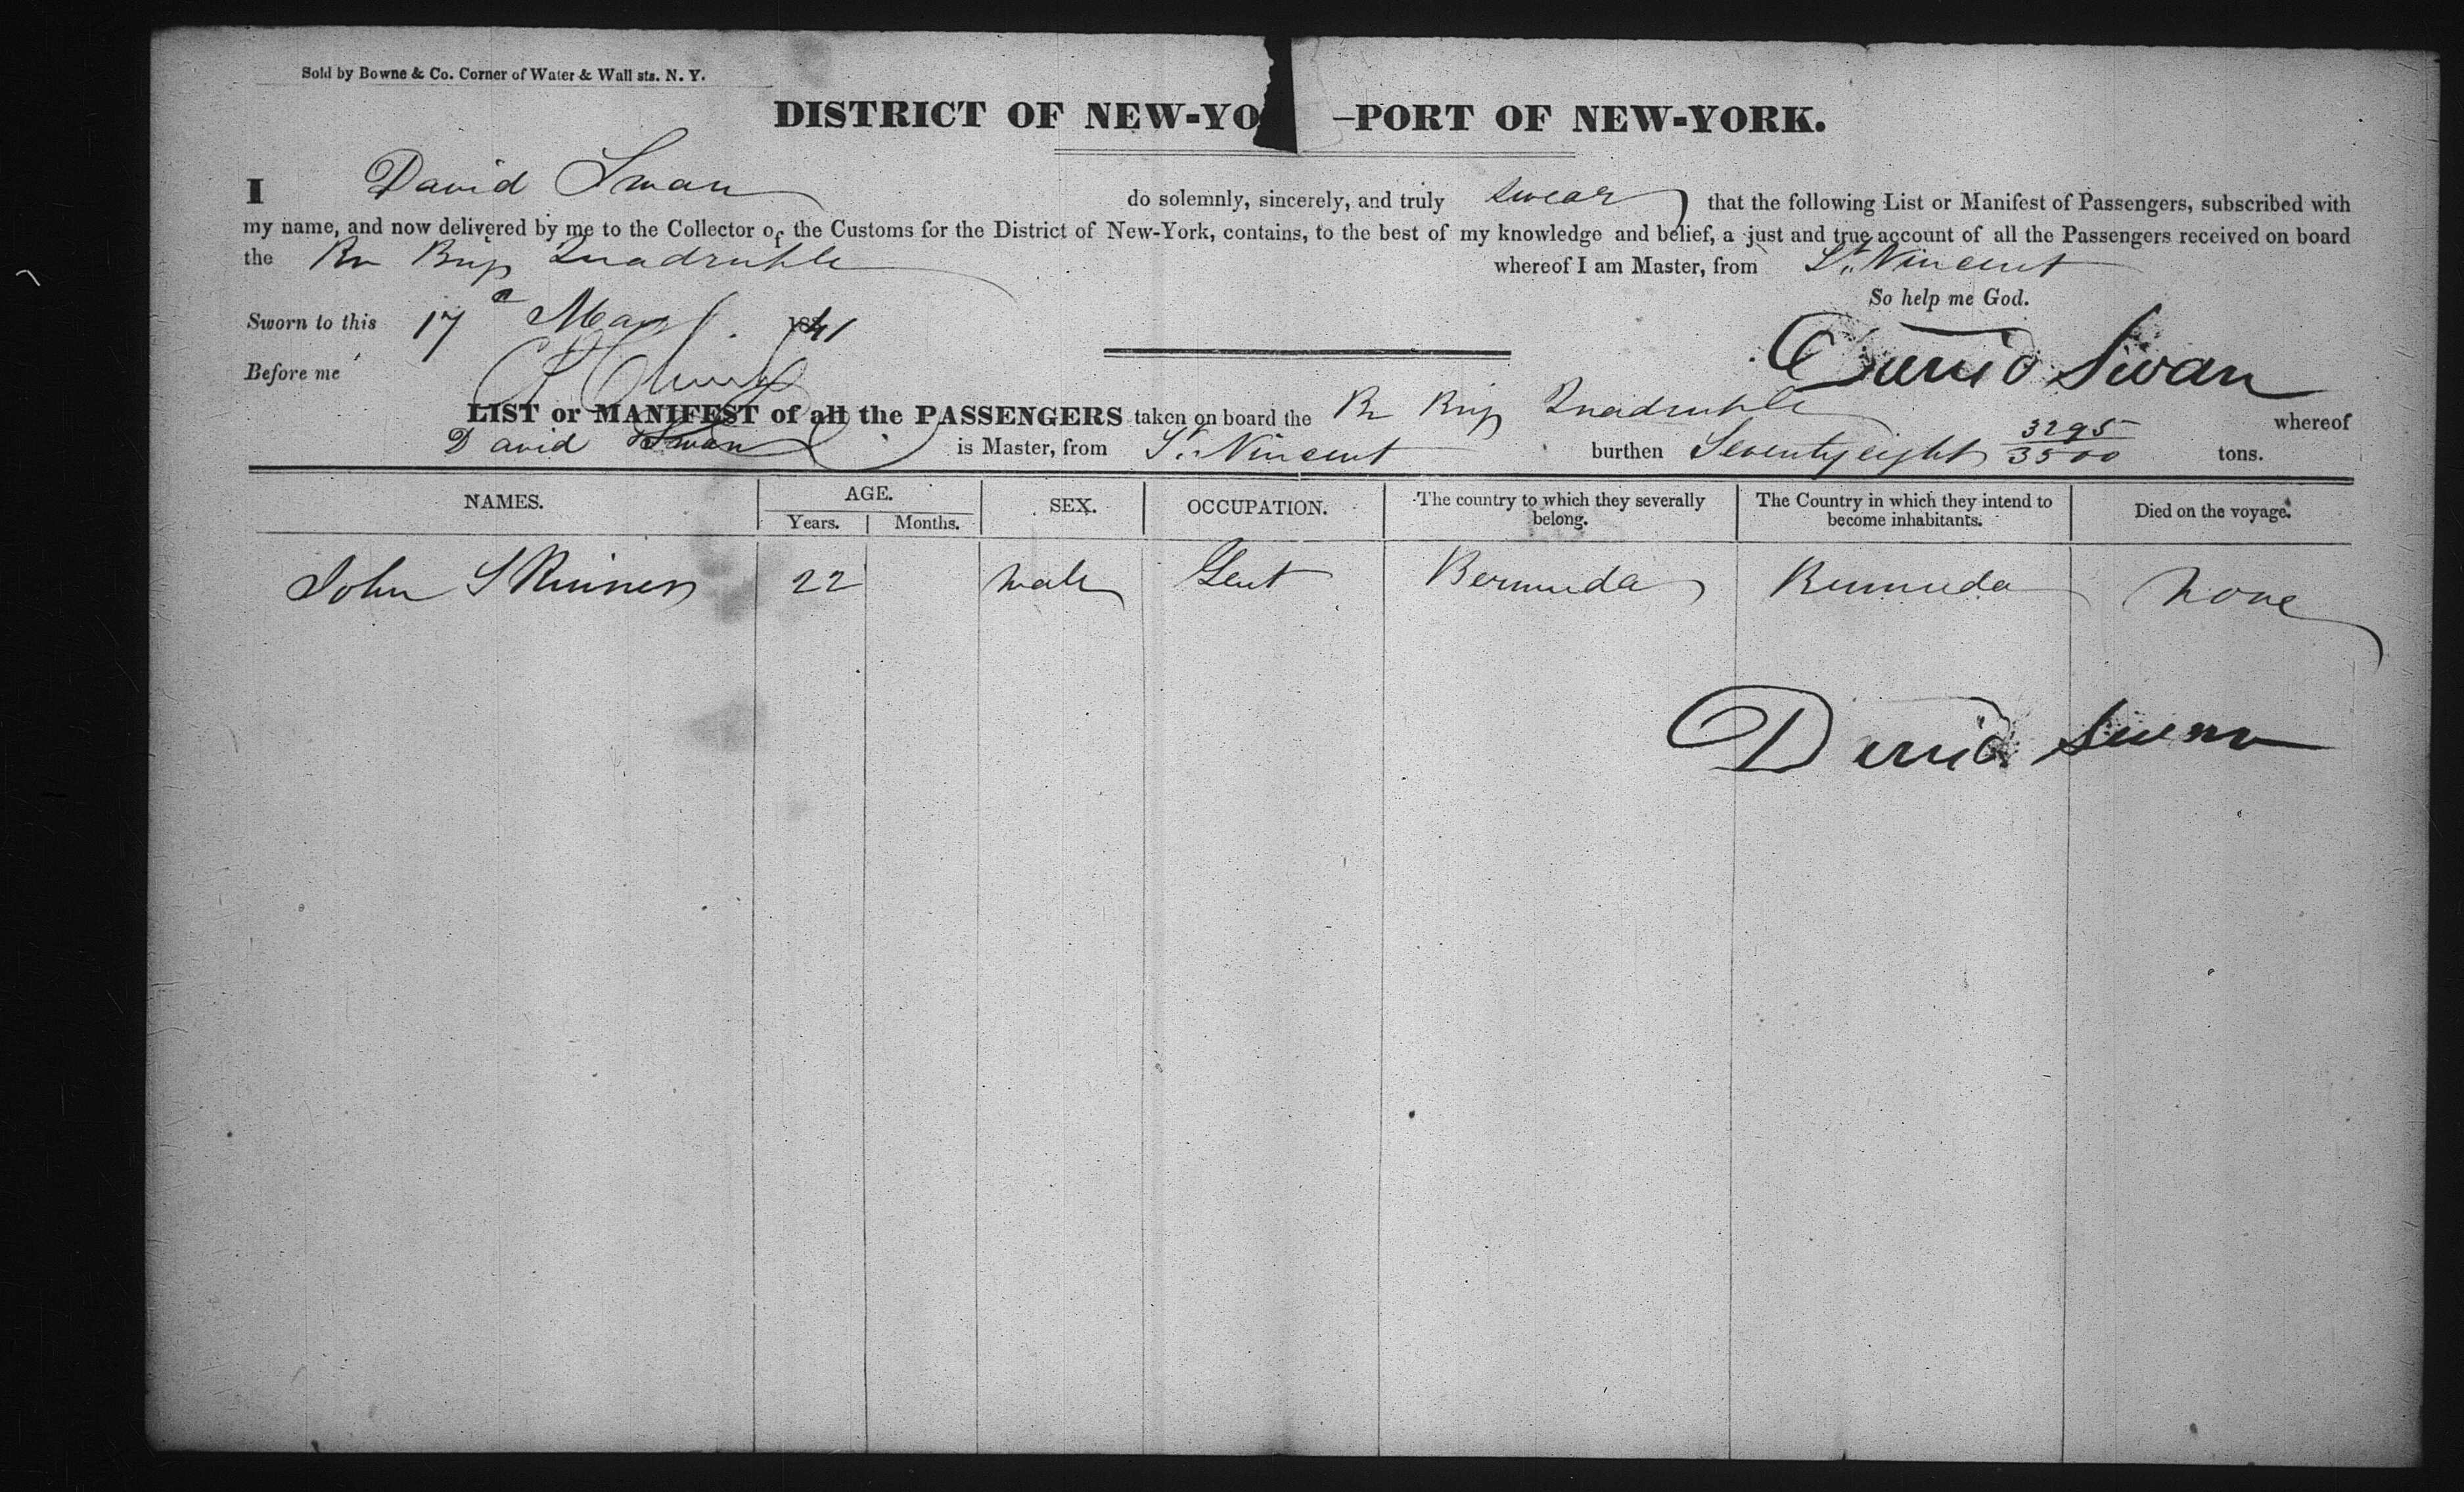 Sold by Bowne & Co. Corner of Water & Wall sts. N. Y.
DISTRICT OF NEW-YO –PORT OF NEW-YORK.
I David Swan do solemnly, sincerely, and truly swear that the following List or Manifest of Passengers, subscribed with
my name, and now delivered by me to the Collector of the Customs for the District of New-York, contains, to the best of my knowledge and belief, a just and true account of all the Passengers received on board
the Br Brig Quadruple whereof I am Master, from St. Vincent
So help me God.
Sworn to this 17 May 1841
David Swan
Before me
LIST or MANIFEST of all the PASSENGERS taken on board the Br Brig Quadruple whereof
David Swan is Master, from St. Vincent burthen Seventy eight 3295/3500 tons.
NAMES. AGE. SEX. OCCUPATION. The country to which they severally belong. The Country in which they intend to become inhabitants. Died on the voyage.
Years. Months.
John Skinner 22 male Gent Bermuda Bermuda None
David Swan